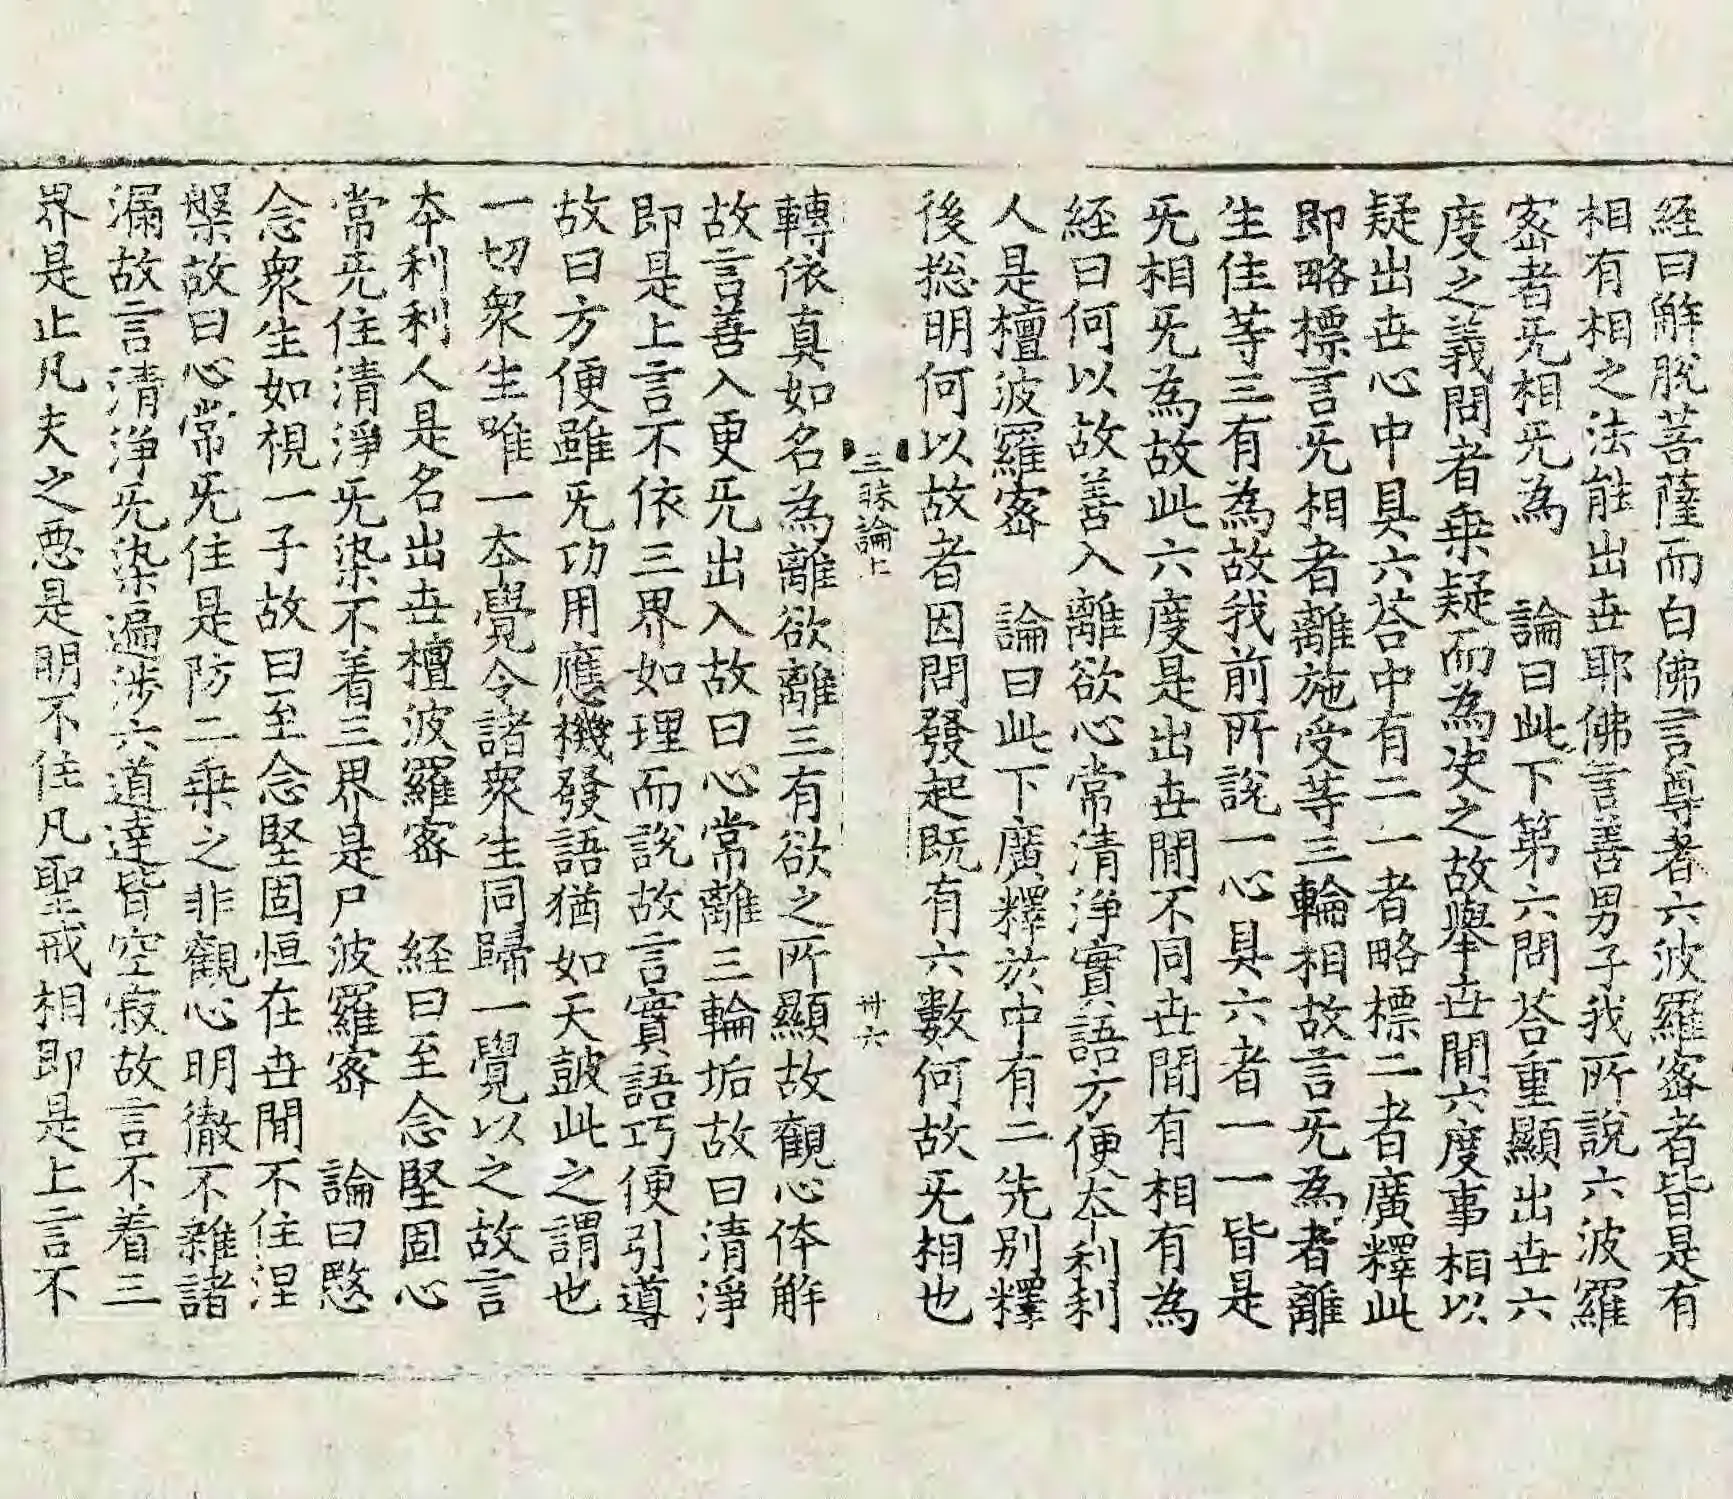 経曰解脫菩薩而白佛言尊者六波羅宻者皆是有
相有相之法能出丗耶佛言善男子我所說六波羅
宻者旡相旡為　論曰此下第六問荅重顯出丗六
度之義問者乗疑而為决之故舉丗間六度事相以
疑出丗心中具六荅中有二一者略標二者廣釋此
即略標言旡相者離施受等三輪相故言旡為者離
生住等三有為故我前所說一心具六者一一皆是
旡相旡為故此六度是出丗間不同丗間有相有為
経曰何以故善入離欲心常清淨實語方便夲利利
人是檀波羅宻　論曰此下廣釋於中有二先別釋
後揔明何以故者因問發起既有六數何故旡相也
三昧論上　卅六
轉依真如名為離欲離三有欲之所顯故觀心体解
故言善入更旡出入故曰心常離三輪垢故曰清淨
即是上言不依三界如理而說故言實語巧便引導
故曰方便雖旡功用應機發語猶如天鼓此之謂也
一切衆生唯一夲覺令諸衆生同歸一覺以之故言
夲利利人是名出丗檀波羅宻　経曰至念堅固心
常旡住清淨旡染不着三界是尸波羅宻　論曰愍
念衆生如視一子故曰至念堅固恒在丗間不住涅
槃故曰心常旡住是防二乗之非觀心明徹不雜諸
漏故言清淨旡染遍涉六道達皆空寂故言不着三
界是止凡夫之惡是明不住凡聖戒相即是上言不